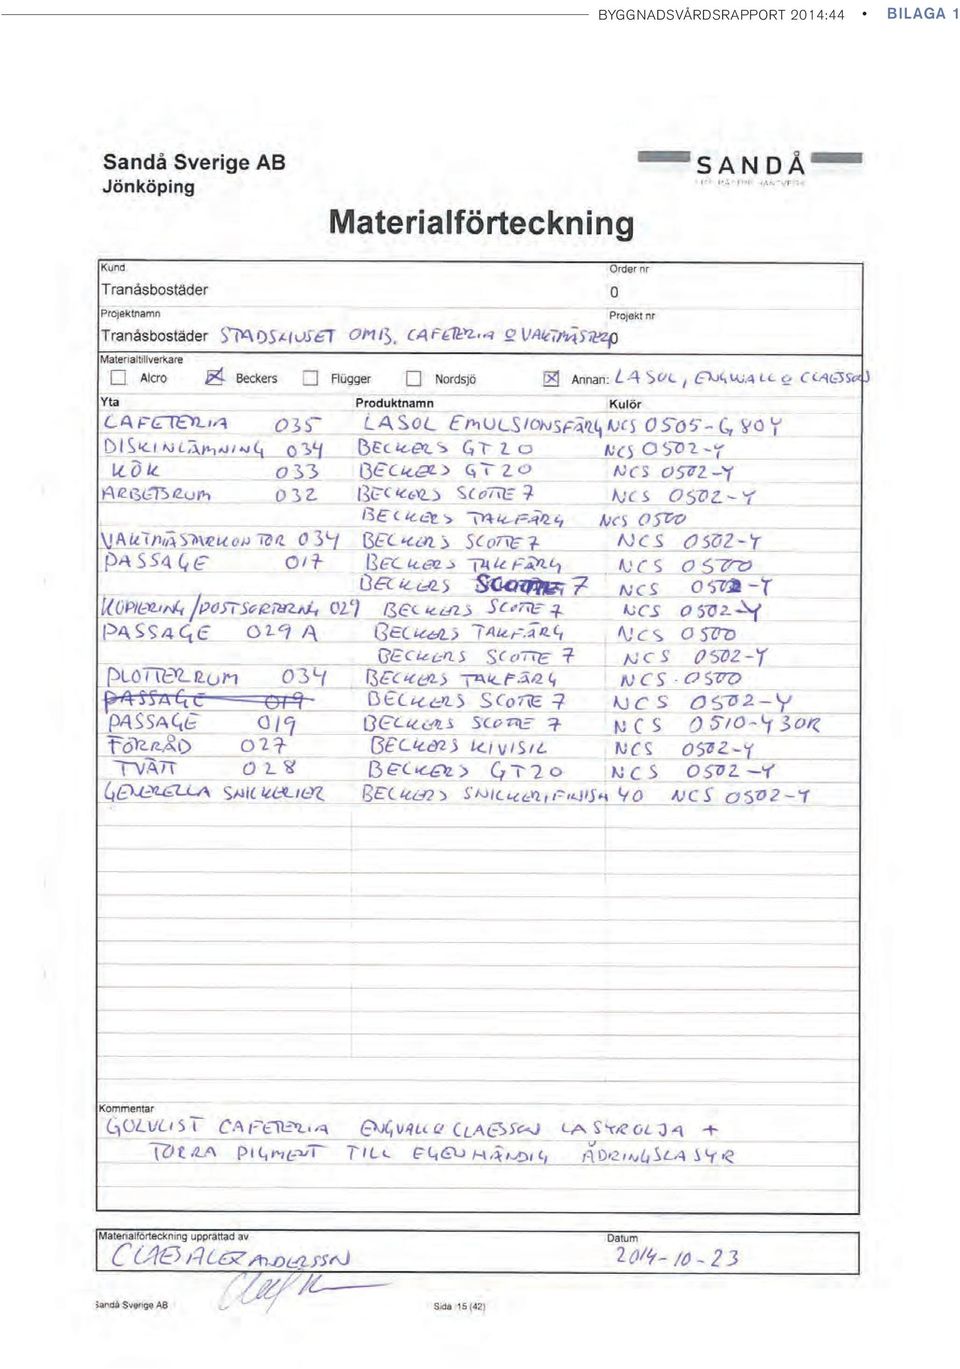 BYGGNADSVÅRDSRAPPORT 2014:44 • BILAGA 1
Sandå Sverige AB
Jönköping
SANDÅ
Materialförteckning
Kund Order nr
Tranåsbostäder 0
Projektnamn Projekt nr
Tranåsbostäder STADSHUSET OMB. CAFETERIA & VAKTMÄSTERI 0
Materialtillverkare
☐ Alcro ☒ Beckers ☐ Flügger ☐ Nordsjö ☒ Annan: LASOL, ENGWALL & CLAESSON
Yta Produktnamn Kulör
CAFETERIA 035 LASOL EMULSIONSFÄRG NCS 0505-G80Y
DISKINLÄMNING 034 BECKERS GT20 NCS 0502-Y
KÖK 033 BECKERS GT20 NCS 0502-Y
ARBETSRUM 032 BECKERS SCOTTE 7 NCS 0502-Y
BECKERS TAKFÄRG NCS 0500
VAKTMÄSTARKONTOR 034 BECKERS SCOTTE 7 NCS 0502-Y
PASSAGE 017 BECKERS TAKFÄRG NCS 0500
BECKERS SCOTTE 7 NCS 0502-Y
KOPIERING/POSTSORTERING 029 BECKERS SCOTTE 7 NCS 0502-Y
PASSAGE 029 A BECKERS TAKFÄRG NCS 0500
BECKERS SCOTTE 7 NCS 0502-Y
PLOTTERRUM 034 BECKERS TAKFÄRG NCS 0500
PASSAGE 019 BECKERS SCOTTE 7 NCS 0502-Y
PASSAGE 019 BECKERS SCOTTE 7 NCS 0510-Y30R
FÖRRÅD 027 BECKERS KIVISIL NCS 0502-Y
TVÄTT 028 BECKERS GT20 NCS 0502-Y
GENERELLA SNICKERIER BECKERS SNICKERIFINISH 40 NCS 0502-Y
Kommentar
GOLVLIST CAFETERIA ENGVALL & CLAESSON LASYROLJA +
TORRA PIGMENT TILL EGENHÄNDIG ÅDRINGSLASYR
Materialförteckning upprättad av Datum
CLAES ALEXANDERSSON 2014-10-23
Sandå Sverige AB Sida 15 (42)